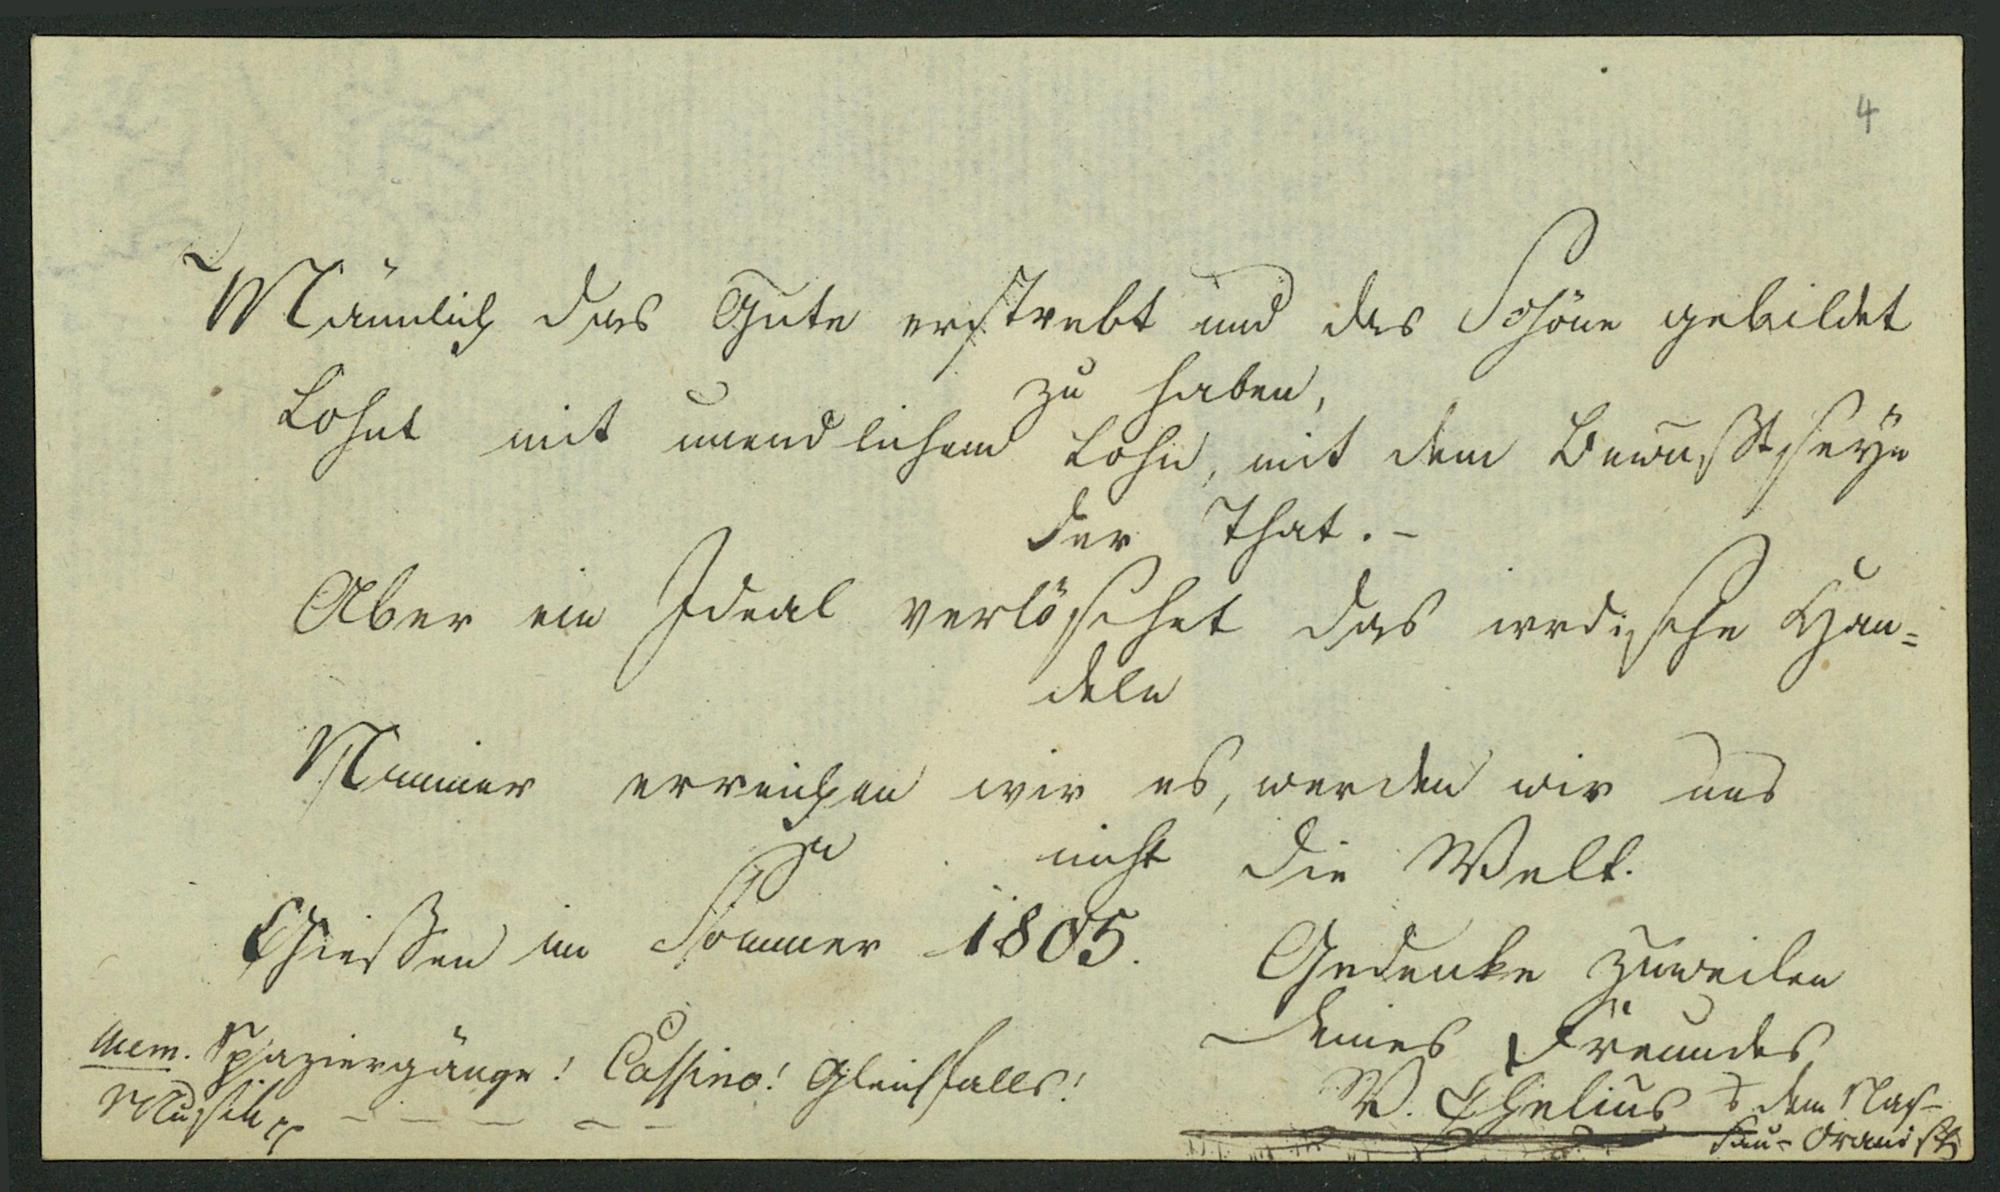 4
Männlich das Gute erstrebt und das Schöne gebildet
zu haben,
Lohnt mit unendlichem Lohn, mit dem Bewußtseyn
der That. –
Aber ein Ideal verlöschet das irdische Han=
deln
Nimmer erreichen wir es, werden wir uns
nicht die Welt.
Giessen im Sommer 1805.
Gedenke zuweilen
Deines Freundes
W. Chelius
dem Nas-
sau-Oranisch
mem. Spaziergänge! Cassino! Gleichfalls!
Musik